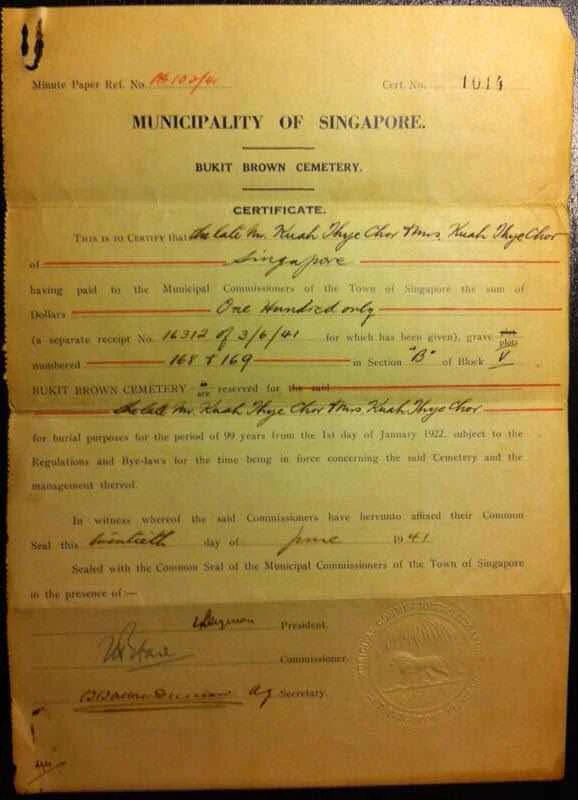 Minute Paper Ref. No. 102/41 Cert. No. 1014
MUNICIPALITY OF SINGAPORE.
BUKIT BROWN CEMETERY.
CERTIFICATE.
THIS IS TO CERTIFY that the late Mr. Kuah Thye Chor & Mrs. Kuah Thye Chor
of Singapore
having paid to the Municipal Commissioners of the Town of Singapore the sum of
Dollars One Hundred only
(a separate receipt No. 16312 of 3/6/41 for which has been given), grave plot plots
numbered 168 & 169 in Section "B" of Block V
BUKIT BROWN CEMETERY is are reserved for the said
the late Mr. Kuah Thye Chor & Mrs Kuah Thye Chor
for burial purposes for the period of 99 years from the 1st day of January 1922, subject to the
Regulations and Bye-laws for the time being in force concerning the said Cemetery and the
management thereof.
In witness whereof the said Commissioners have hereunto affixed their Common
Seal this twentieth day of June 1941
Sealed with the Common Seal of the Municipal Commissioners of the Town of Singapore
in the presence of:—
President.
Commissioner.
Ag Secretary.